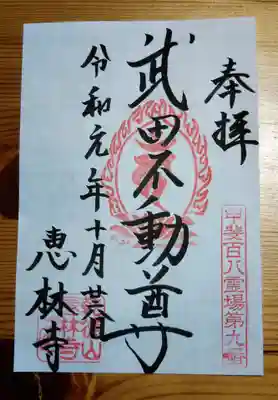 奉拝
甲斐百八霊場第九番
武田不動尊
令和元年十月
恵林寺